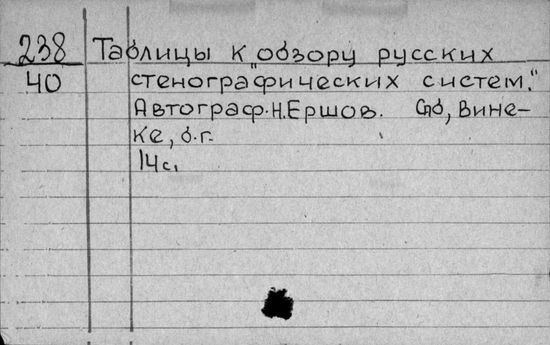 238
40
Таблицы к "обзору русских
стенографических систем."
Автограф. Н. Ершов. Спб, Вине-
ке, б.г.
14с.